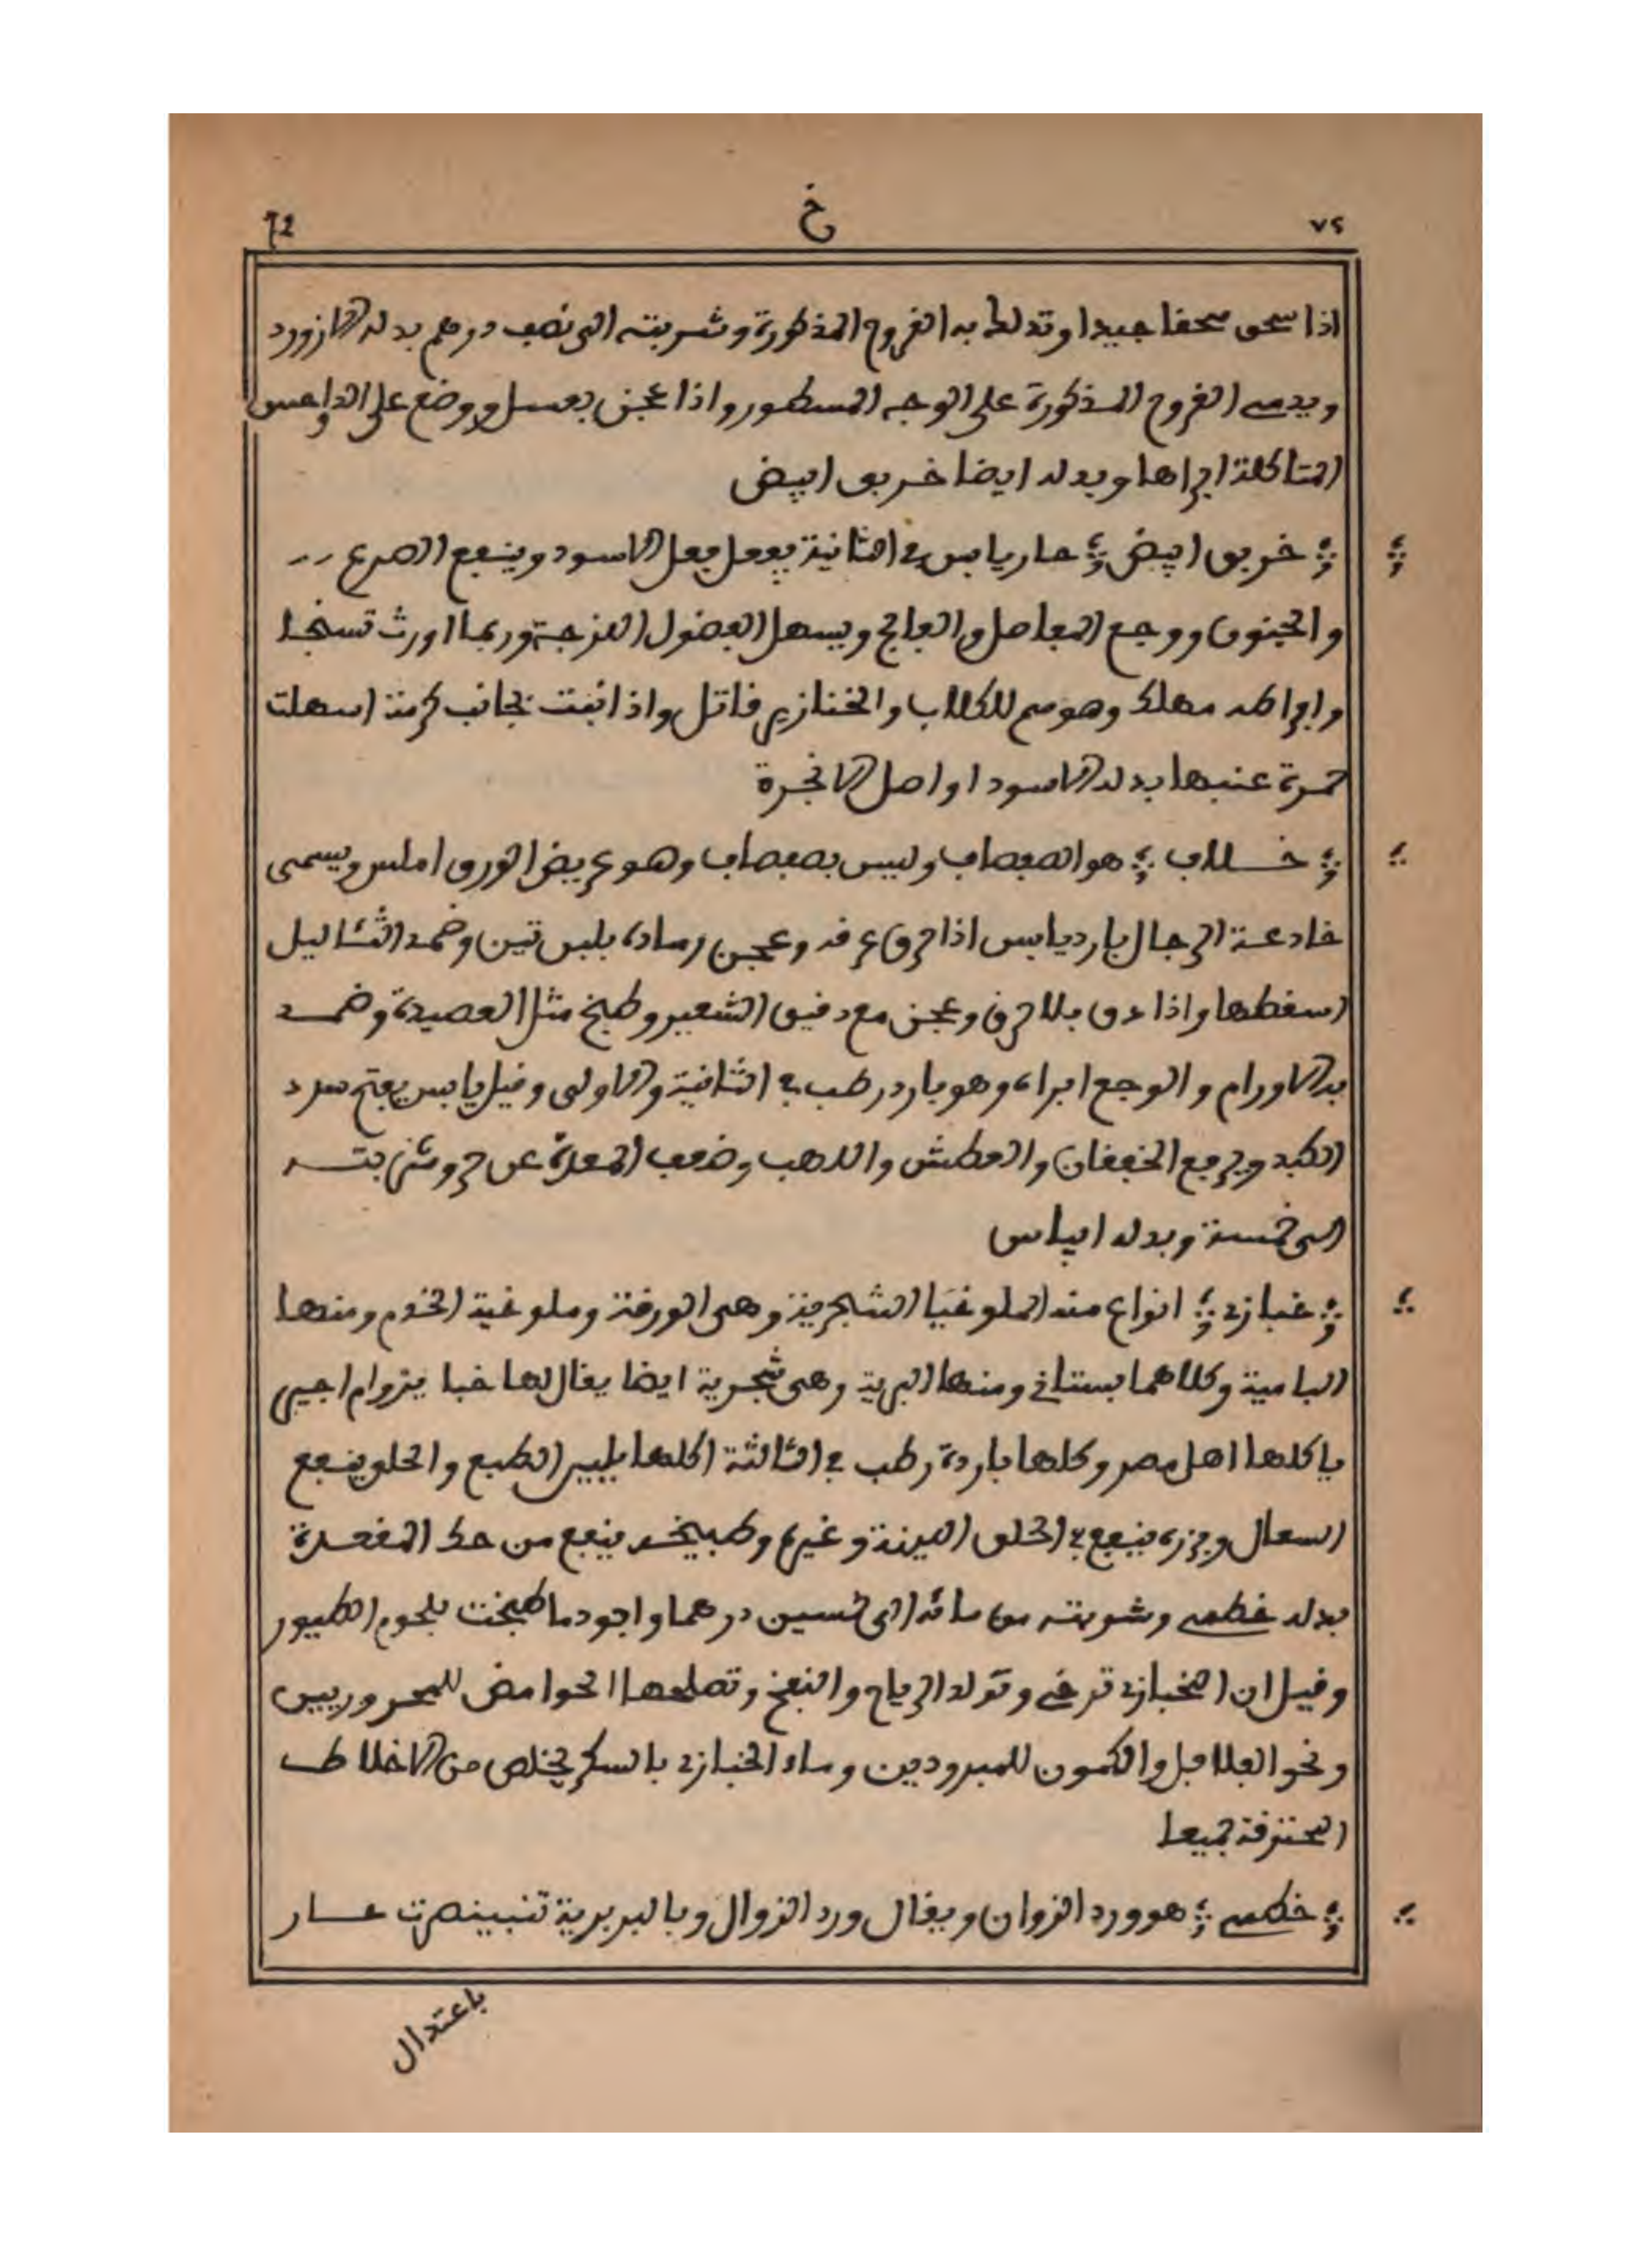 ٧٢ خ 72
اذا سحق سحقا جيدا وتدلك به القروح المذكورة وشربته الى نصب درهم بدله الازورد
ويدمي القروح المذكورة على الوجه المسطور واذا عجن بعسل ووضع على الدواحس
المتاكلة ابراها وبدله ايضا خربق ابيض
خربق ابيض حار يابس في الثانية يفعل فعل الاسود وينفع الصرع
والجنون ووجع المفاصل والفالج ويسهل الفضول اللزجة وربما اورث تسنجا
وافراطه مهلك وهو سم للكلاب والخنازير قاتل واذا نبت بجانب كرمة اسهلت
خمرة عنبها بدله الاسود او اصل الانجرة
خلاف هو الصفصاف وليس بصفصاف وهو عريض الورق املس ويسمى
خادعة الرجال بارد يابس اذا حرق عرقه وعجن رماده بلبن تين وضمد الثئاليل
اسقطها واذا دق بلا حرق وعجن مع دقيق الشعير وطبخ مثل العصيدة وضمد
به الاورام والوجع ابراه وهو بارد رطب في الثانية والاولى وقيل يابس يفتح سدد
الكبد ويرفع الخفقان والعطش واللهب وضعف المعدة عن حر وشربته
الى خمسة وبدله
خبازى انواع منه الملوخيا الشجرية وهي الورقة وملوخية الخدم ومنها
البامية وكلاهما بستاني ومنها البرية وهي شجرية ايضا يقال لها خبا يزوام اجبى
ياكلها اهل مصر وكلها باردة رطب في الثالثة اكلها يلين الطبع والحلق ينفع
السعال وبزره ينفع في الحلق اللينة وغيره وطبيخه ينفع من حك المقعدة
بدله خطمي وشربته من مائه الى خمسين درهما واجود ما طبخت بلحوم الطيور
وقيل ان الخبازى ترخي وتولد الرياح والنفخ وتصلحها الحوامض للمحرورين
ونحو الفلافل والكمون للمبرودين وماء الخبازى بالسكر يخلص من الاخلاط
المحترقة جميعا
خطمي هو ورد الزوان ويقال ورد الزوال وبالبربرية تنبينصرت حار
باعتدال